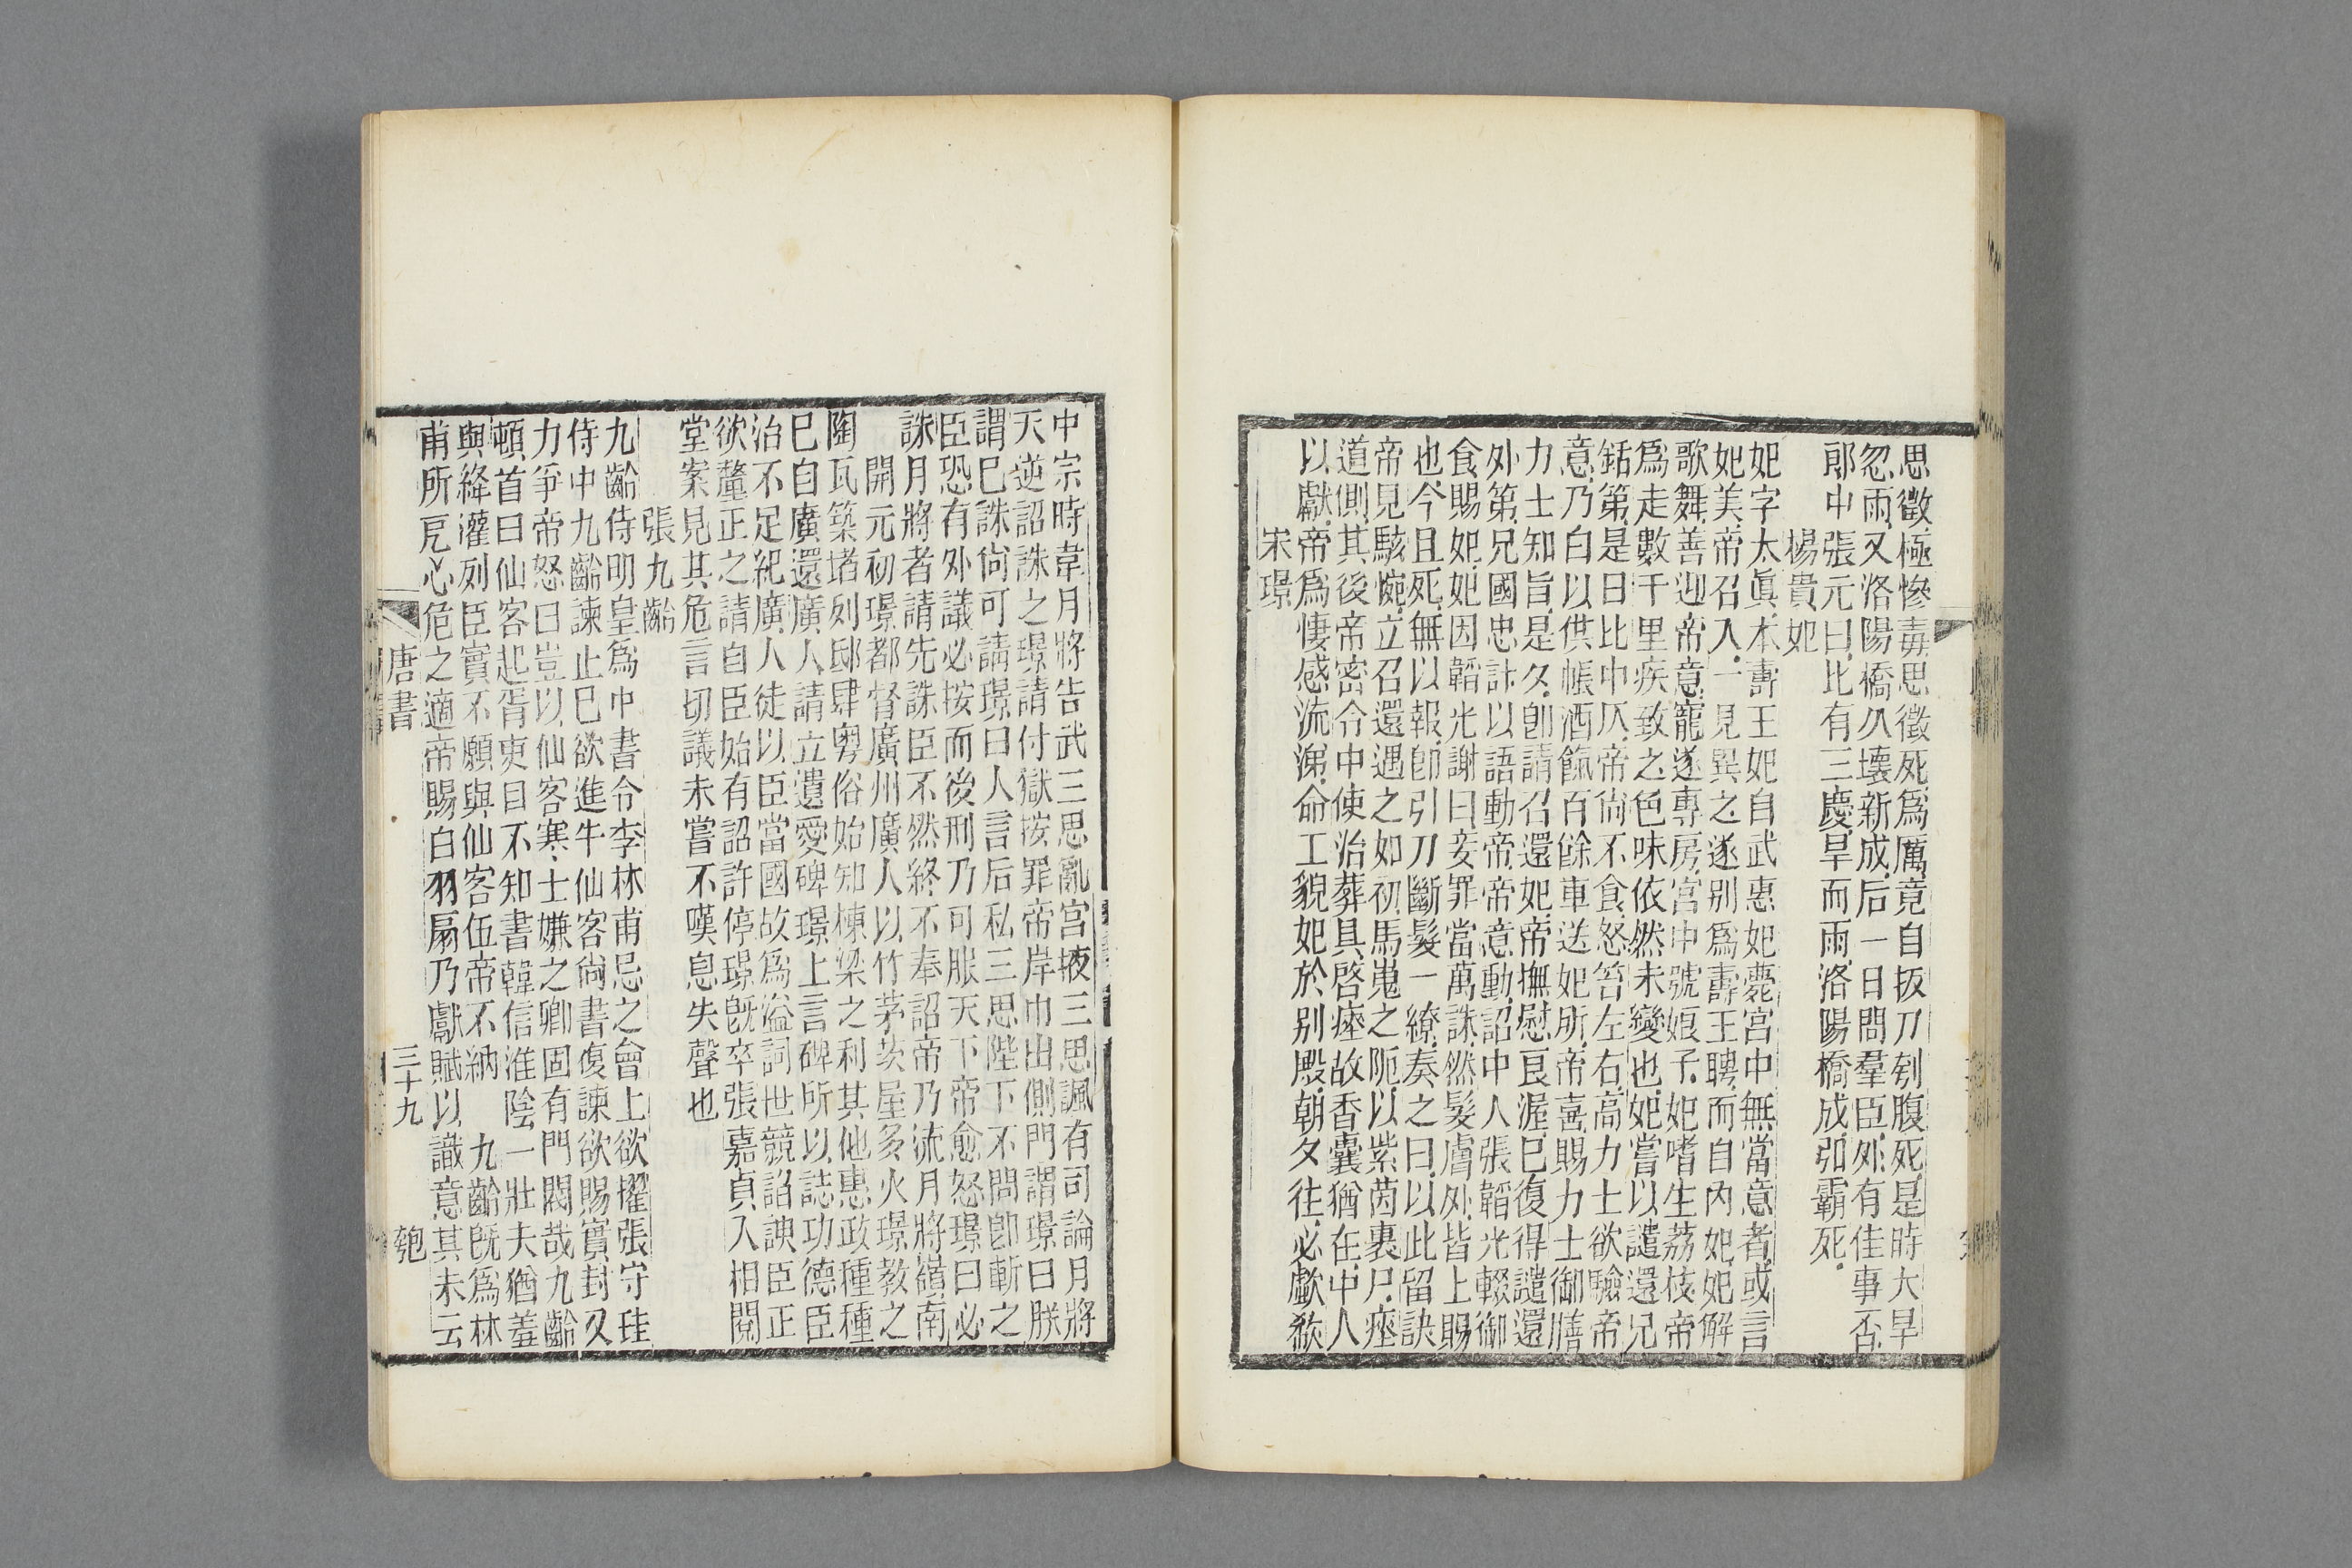 思徵極慘毒思徵死爲厲竟自扳刀刳腹死是時大旱
忽雨又洛陽橋久壞新成后一日問羣臣外有佳事否
郎中張元曰比有三慶旱而雨洛陽橋成弘霸死
楊貴妃
妃字太眞本壽王妃自武惠妃薨宮中無當意者或言
妃美帝召入一見異之遂别爲壽王聘而自内妃妃解
歌舞善迎帝意寵遂專房宮中號娘子妃嗜生荔枝帝
爲走數千里疾致之色味依然未變也妃嘗以譴還兄
銛第是日比中仄帝尙不食怒笞左右高力士欲驗帝
意乃白以供帳酒餼百餘車送妃所帝喜賜力士御膳
力士知旨是夕卽請召還妃帝撫慰良渥巳復得譴還
外第兄國忠計以語動帝帝意動詔中人張韜光輟御
食賜妃妃因韜光謝曰妾罪當萬誅然髮膚外皆上賜
也今且死無以報卽引刀斷髮一繚奏之曰以此留訣
帝見駭惋立召還遇之如初馬嵬之阨以紫茵裹尸瘞
道側其後帝密令中使治葬具啓瘞故香囊猶在中人
以獻帝爲悽感流涕命工貌妃於别殿朝夕往必歔欷
宋璟
中宗時韋月將告武三思亂宮掖三思諷有司論月將
天逆詔誅之璟請付獄按罪帝岸巾出側門謂璟曰朕
謂巳誅尙可請璟曰人言后私三思陛下不問卽斬之
臣恐有外議必按而後刑乃可服天下帝愈怒璟曰必
誅月將者請先誅臣不然終不奉詔帝乃流月將嶺南
開元初璟都督廣州廣人以竹茅茨屋多火璟教之
陶瓦築堵列邸肆粤俗始知棟梁之利其他惠政種種
巳自廣還廣人請立遺愛碑璟上言碑所以誌功德臣
治不足紀廣人徒以臣當國故爲溢詞世競諂諛臣正
欲釐正之請自臣始有詔許停璟旣卒張嘉貞入相閱
堂案見其危言切議未嘗不嘆息失聲也
張九齡
九齡侍明皇爲中書令李林甫忌之會上欲擢張守珪
侍中九齡諫止巳欲進牛仙客尙書復諫欲賜實封又
力爭帝怒曰豈以仙客寒士嫌之卿固有門閥哉九齡
頓首曰仙客起胥吏目不知書韓信淮陰一壯夫猶羞
與絳灌列臣實不願與仙客伍帝不納　九齡旣爲林
甫所戹心危之適帝賜白羽扇乃獻賦以識意其未云
唐書　三十九　匏